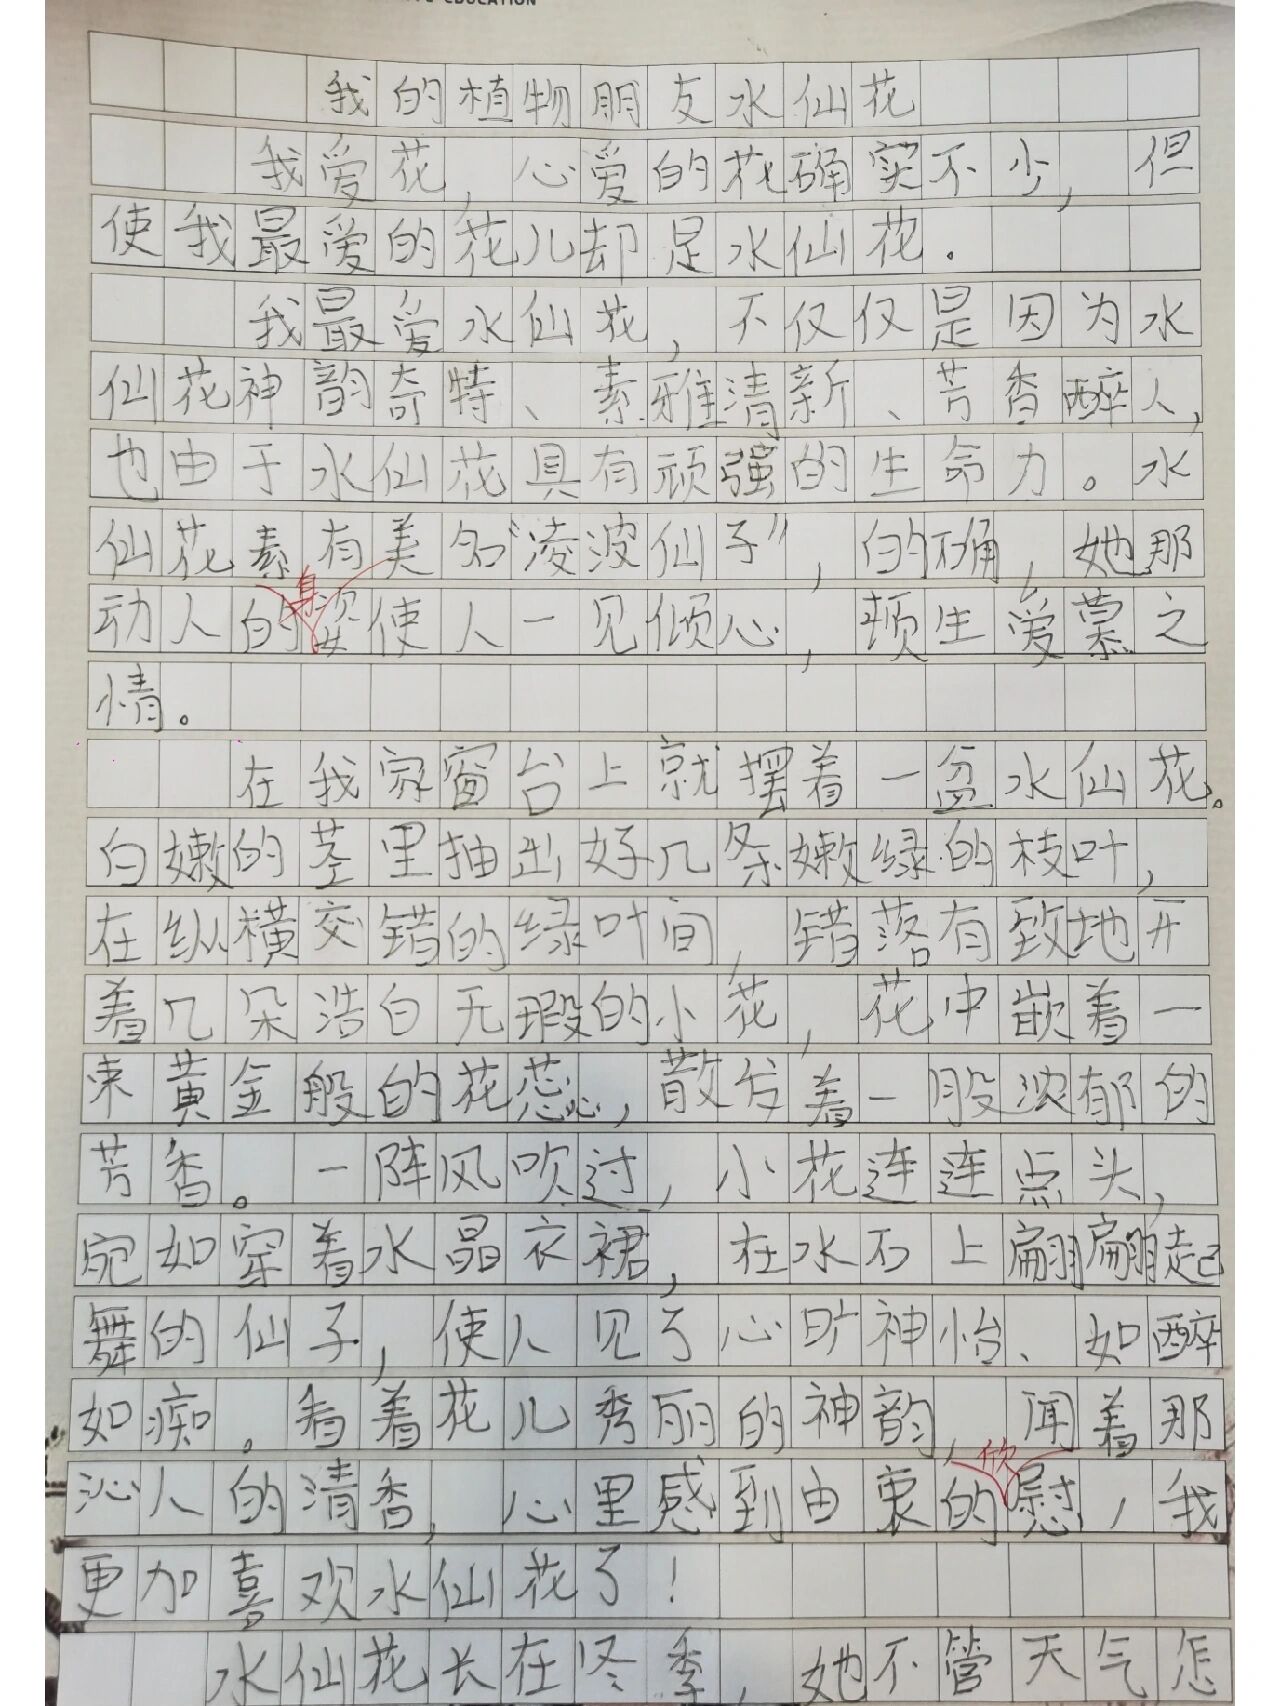 EDUCATION
我的植物朋友水仙花
我爱花,心爱的花确实不少,但
使我最爱的花儿却是水仙花。
我最爱水仙花,不仅仅是因为水
仙花神韵奇特、素雅清新、芳香醉人,
也由于水仙花具有顽强的生命力。水
仙花素有美名“凌波仙子”,的确,她那
动人的身姿使人一见倾心,顿生爱慕之
情。
在我家窗台上就摆着一盆水仙花。
白嫩的茎里抽出好几条嫩绿的枝叶,
在纵横交错的绿叶间,错落有致地开
着几朵浩白无瑕的小花,花中嵌着一
束黄金般的花蕊,散发着一股浓郁的
芳香。一阵风吹过,小花连连点头,
宛如穿着水晶衣裙,在水石上翩翩起
舞的仙子,使人见了心旷神怡、如醉
如痴。看着花儿秀丽的神韵,闻着那
沁人的清香,心里感到由衷的欣慰,我
更加喜欢水仙花了!
水仙花长在冬季,她不管天气怎